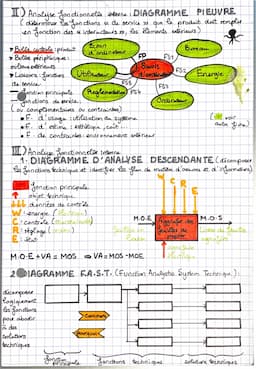 II) Analyse fonctionnelle externe : DIAGRAMME PIEUVRE
(déterminer les fonctions de service que le produit doit remplir
en fonction des "interacteurs", les éléments extérieurs)
Bulle centrale : produit
Bulle périphérique :
Liaisons : fonctions
de service
fonction principale
fonctions de
(ou complémentaires ou contraintes)
F. d'usage : utilisation du système
F. d'estime : esthétique, coût
F. de contraintes : environnement extérieur
Ecran
d'ordinateur
Bureau
Utilisateur
FP
Souris
d'ordinateur
FS1
Energie
FS3
FS4
Réglementation
Ordinateur
voir
autre
fiche
III) Analyse fonctionnelle interne
1. DIAGRAMME D'ANALYSE DESCENDANTE (décomposer
les fonctions technique et identifier les flux de matière d'oeuvre et d'informations)
fonction principale
objet technique
données de contrôle
W : énergie (électrique)
C : contrôle
R : réglage
E :
W C R E
M.O.E
M.O.S
Agrafer des
feuilles de
papier
M.O.E + VA = MOS => VA = MOS - MOE
2. DIAGRAMME F.A.S.T. (Function Analysis System Technique) :
décomposer
logiquement
les fonctions
pour aboutir
à des
solutions
techniques
Comment
Pourquoi
fonction
principale
fonctions techniques
solutions techniques